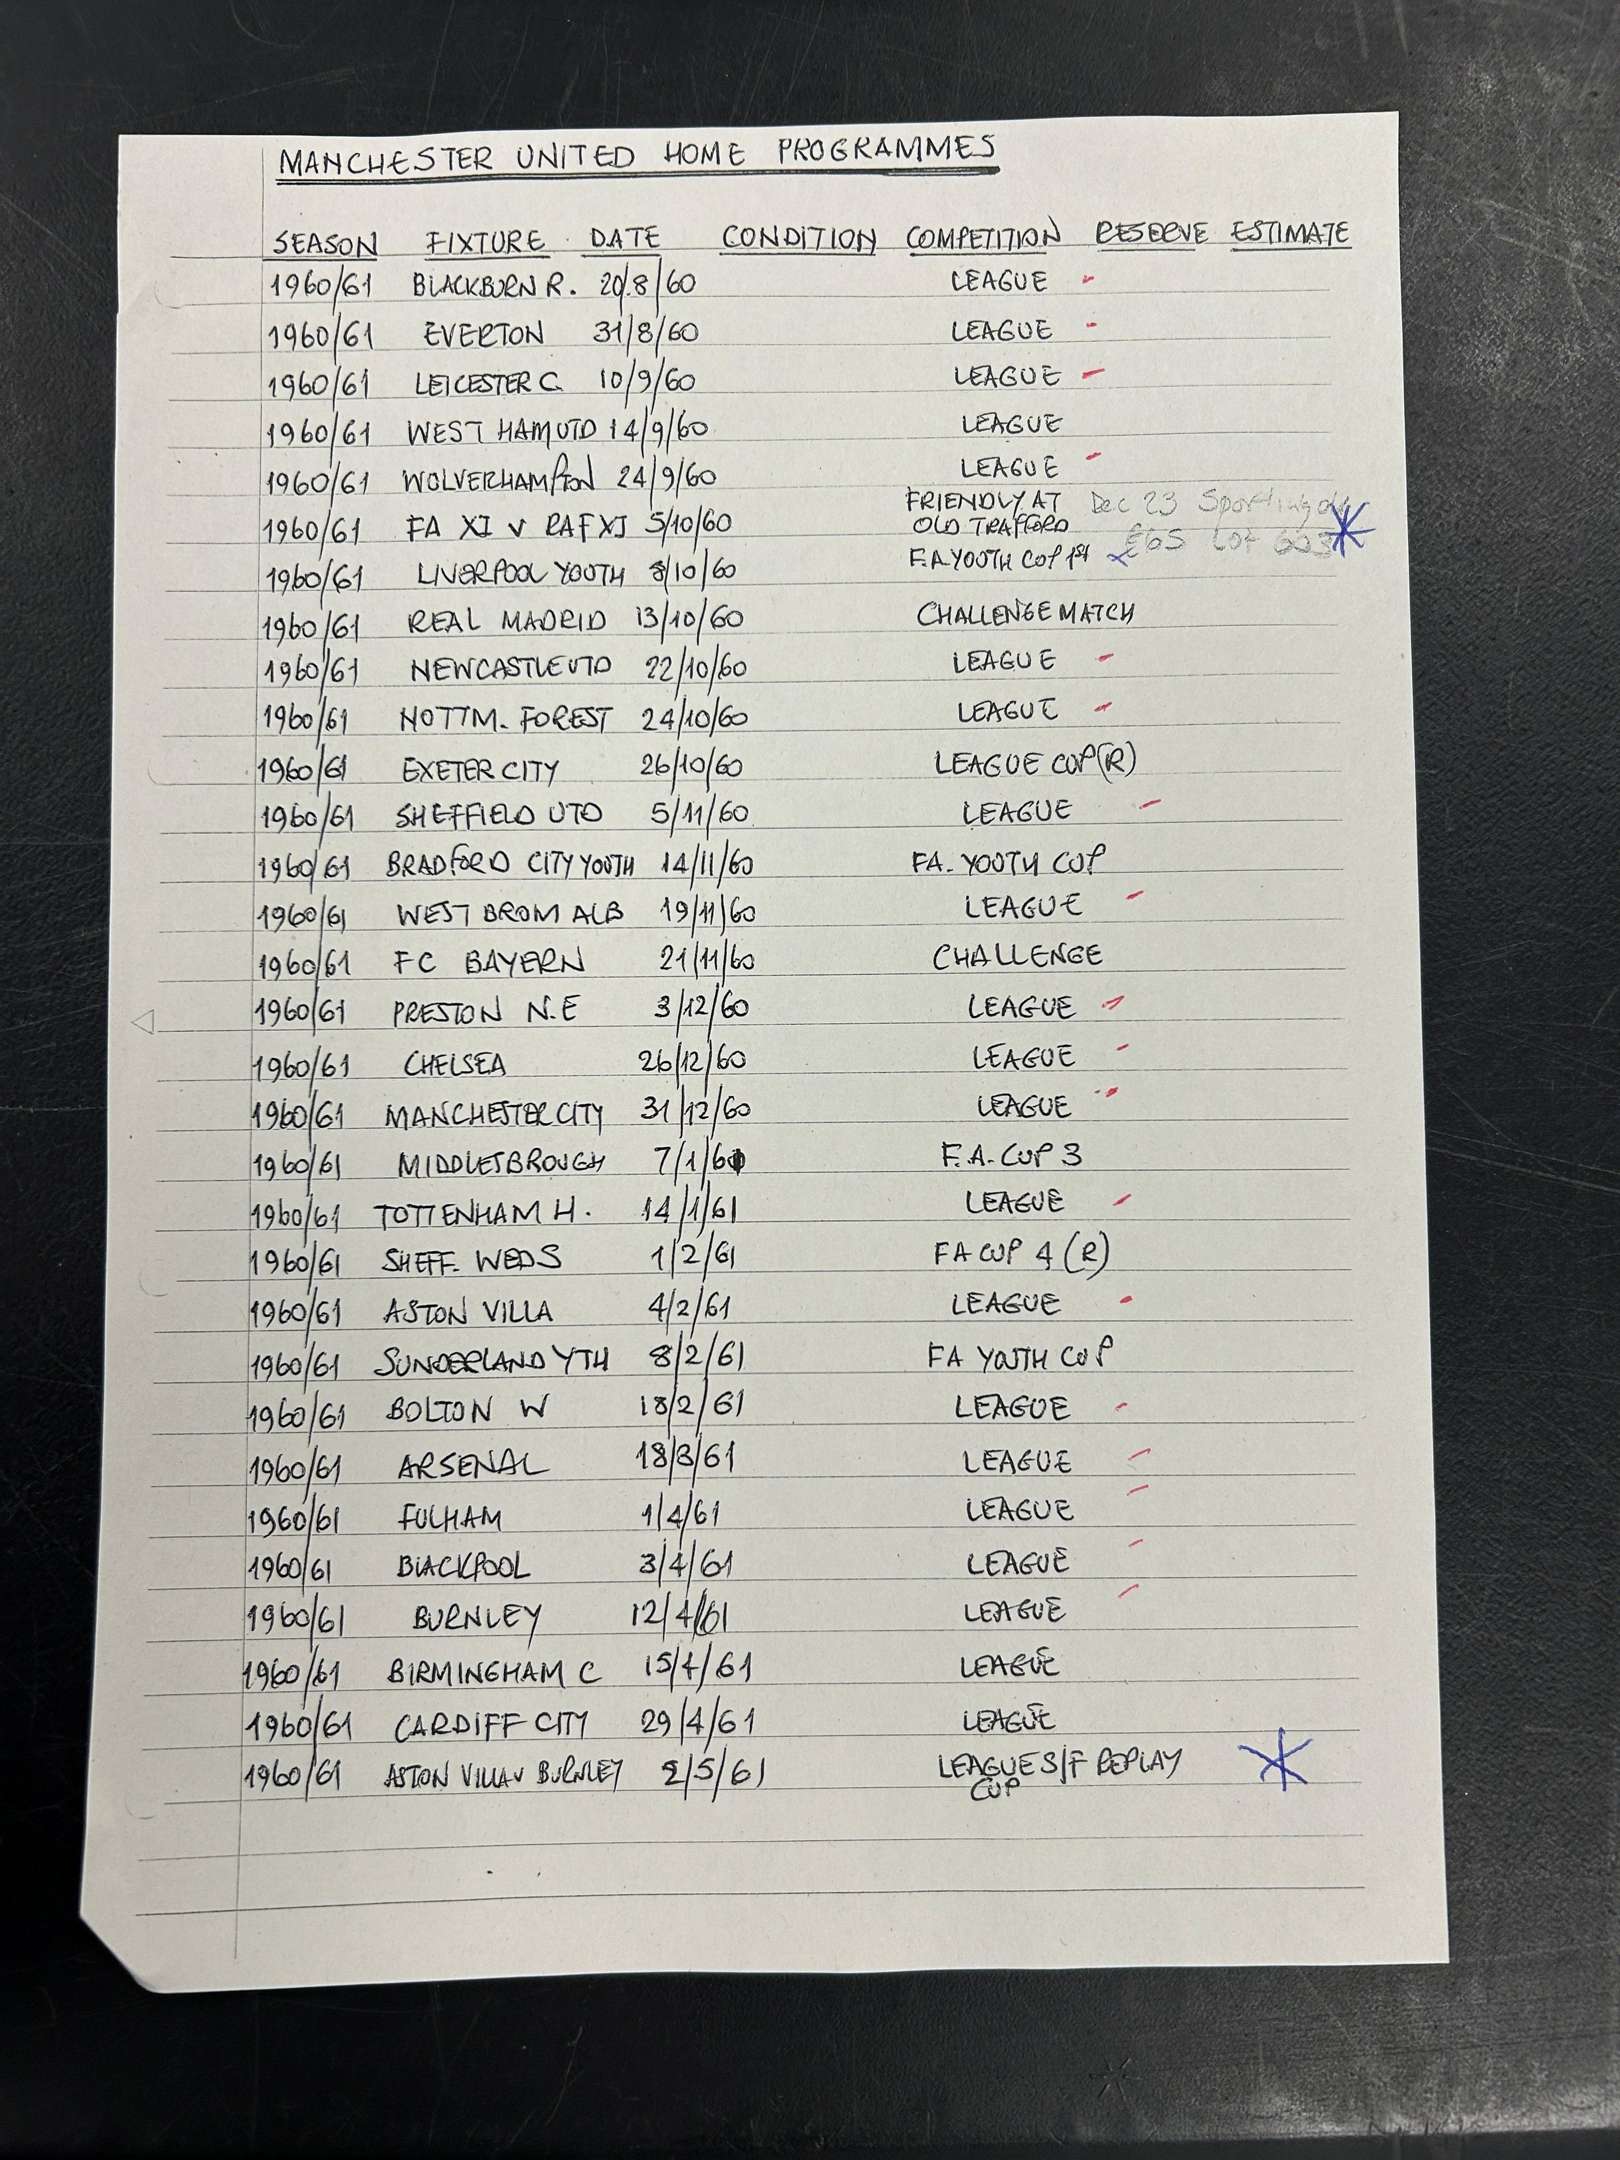 MANCHESTER UNITED HOME PROGRAMMES
SEASON FIXTURE DATE CONDITION COMPETITION RESERVE ESTIMATE
1960/61 BLACKBURN R. 20/8/60 LEAGUE -
1960/61 EVERTON 31/8/60 LEAGUE -
1960/61 LEICESTER C. 10/9/60 LEAGUE -
1960/61 WEST HAM UTD 14/9/60 LEAGUE
1960/61 WOLVERHAMPTON 24/9/60 LEAGUE -
1960/61 FA XI v RAF XI 5/10/60 FRIENDLY AT OLD TRAFFORD Dec 23 Sporting
1960/61 LIVERPOOL YOUTH 8/10/60 F.A YOUTH CUP 1st x £65 Lot 603
1960/61 REAL MADRID 13/10/60 CHALLENGE MATCH
1960/61 NEWCASTLE UTD 22/10/60 LEAGUE -
1960/61 NOTTM. FOREST 24/10/60 LEAGUE -
1960/61 EXETER CITY 26/10/60 LEAGUE CUP (R)
1960/61 SHEFFIELD UTD 5/11/60 LEAGUE -
1960/61 BRADFORD CITY YOUTH 14/11/60 FA. YOUTH CUP
1960/61 WEST BROM ALB 19/11/60 LEAGUE -
1960/61 FC BAYERN 21/11/60 CHALLENGE
1960/61 PRESTON N.E 3/12/60 LEAGUE -
1960/61 CHELSEA 26/12/60 LEAGUE -
1960/61 MANCHESTER CITY 31/12/60 LEAGUE -
1960/61 MIDDLESBROUGH 7/1/61 F.A. CUP 3
1960/61 TOTTENHAM H. 14/1/61 LEAGUE -
1960/61 SHEFF. WEDS 1/2/61 FA CUP 4 (R)
1960/61 ASTON VILLA 4/2/61 LEAGUE -
1960/61 SUNDERLAND YTH 8/2/61 FA YOUTH CUP
1960/61 BOLTON W 18/2/61 LEAGUE -
1960/61 ARSENAL 18/3/61 LEAGUE -
1960/61 FULHAM 1/4/61 LEAGUE -
1960/61 BLACKPOOL 3/4/61 LEAGUE -
1960/61 BURNLEY 12/4/61 LEAGUE -
1960/61 BIRMINGHAM C 15/4/61 LEAGUE
1960/61 CARDIFF CITY 29/4/61 LEAGUE
1960/61 ASTON VILLA v BURNLEY 2/5/61 LEAGUE S/F REPLAY
CUP